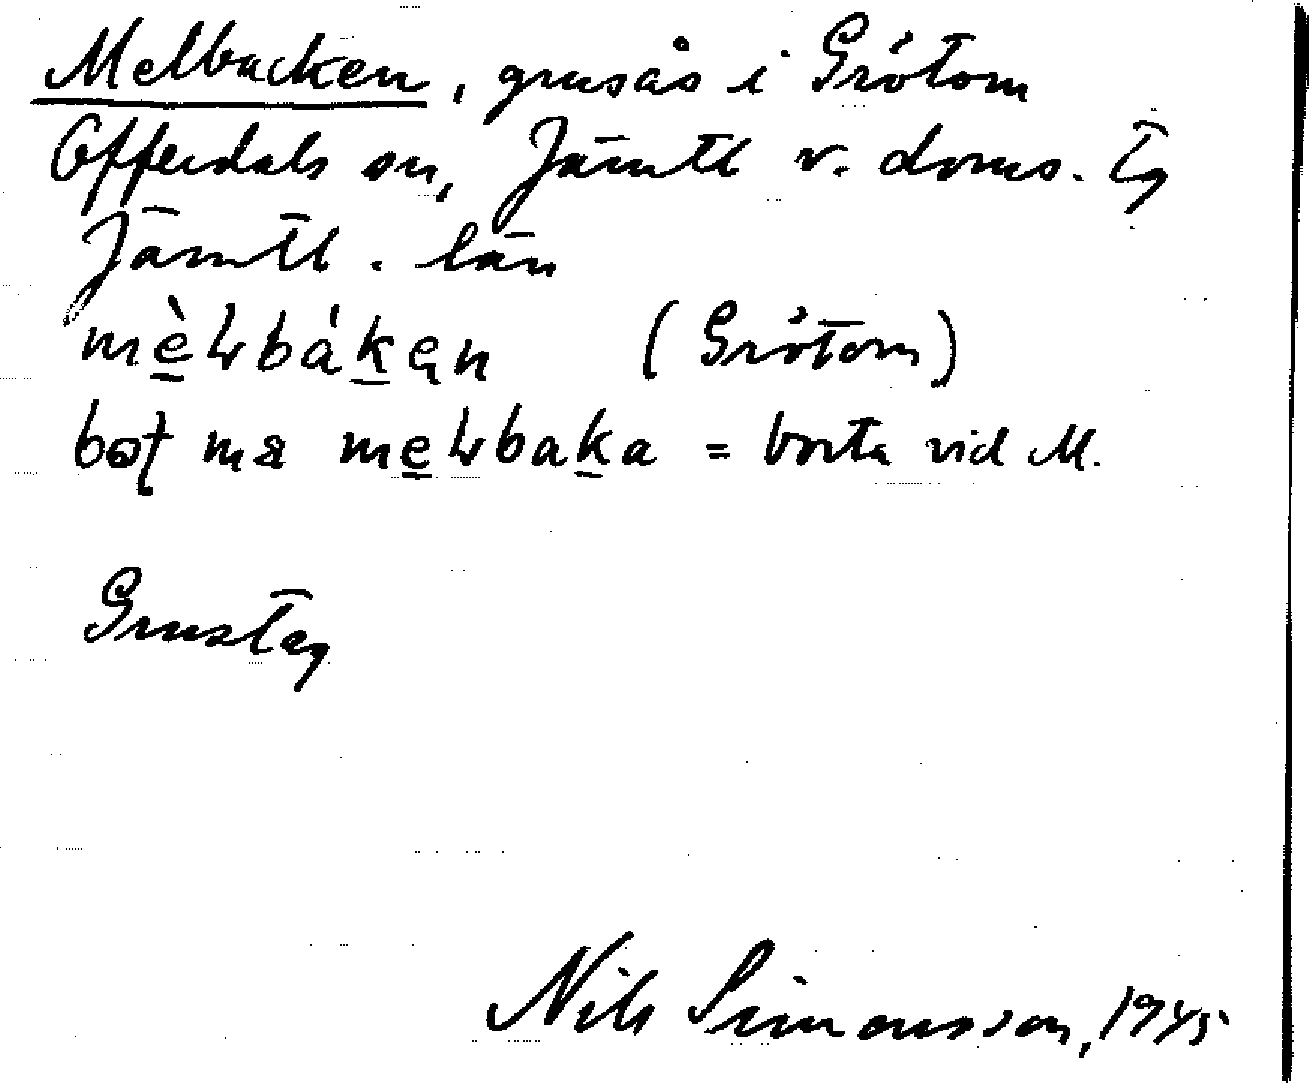 Melbacken, grusås i Grötom
Offerdals sn, Jämtl v. doms. tg
Jämtl. län
(Grötom)
ma = borta vid M.
Grustag
Nils Simonsson, 1945